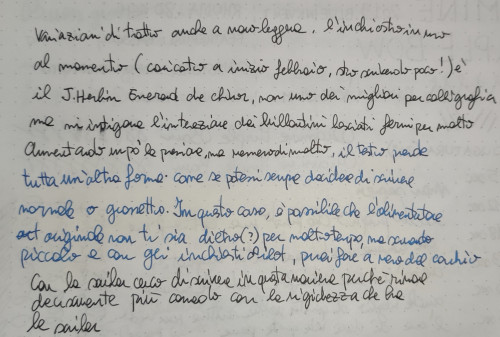 Variazioni di tratto anche a mano leggera. L'inchiostro in uso
al momento (caricato a inizio febbraio, sto scrivendo poco!) è
il J. Herbin Emerod de chivor, non uno dei migliori per calligraphia
ma mi intrigava l'interazione dei brillantini lasciati fermi per molto
Aumentando un pò la pressione, ma nemmeno di molto, il tratto prende
tutta un'altra forma. come se potessi sempre decidere di scrivere
normale o grassetto. In questo caso, è possibile che l'alimentatore
originale non ti sia dietro(?) per molto tempo, ma essendo
piccolo e con gli inchiostri Pilot, puoi fare a meno del carico
Con la sailor cerco di scrivere in questa maniera perchè rimane
decisamente più comodo con la rigidezza che ha
la sailor